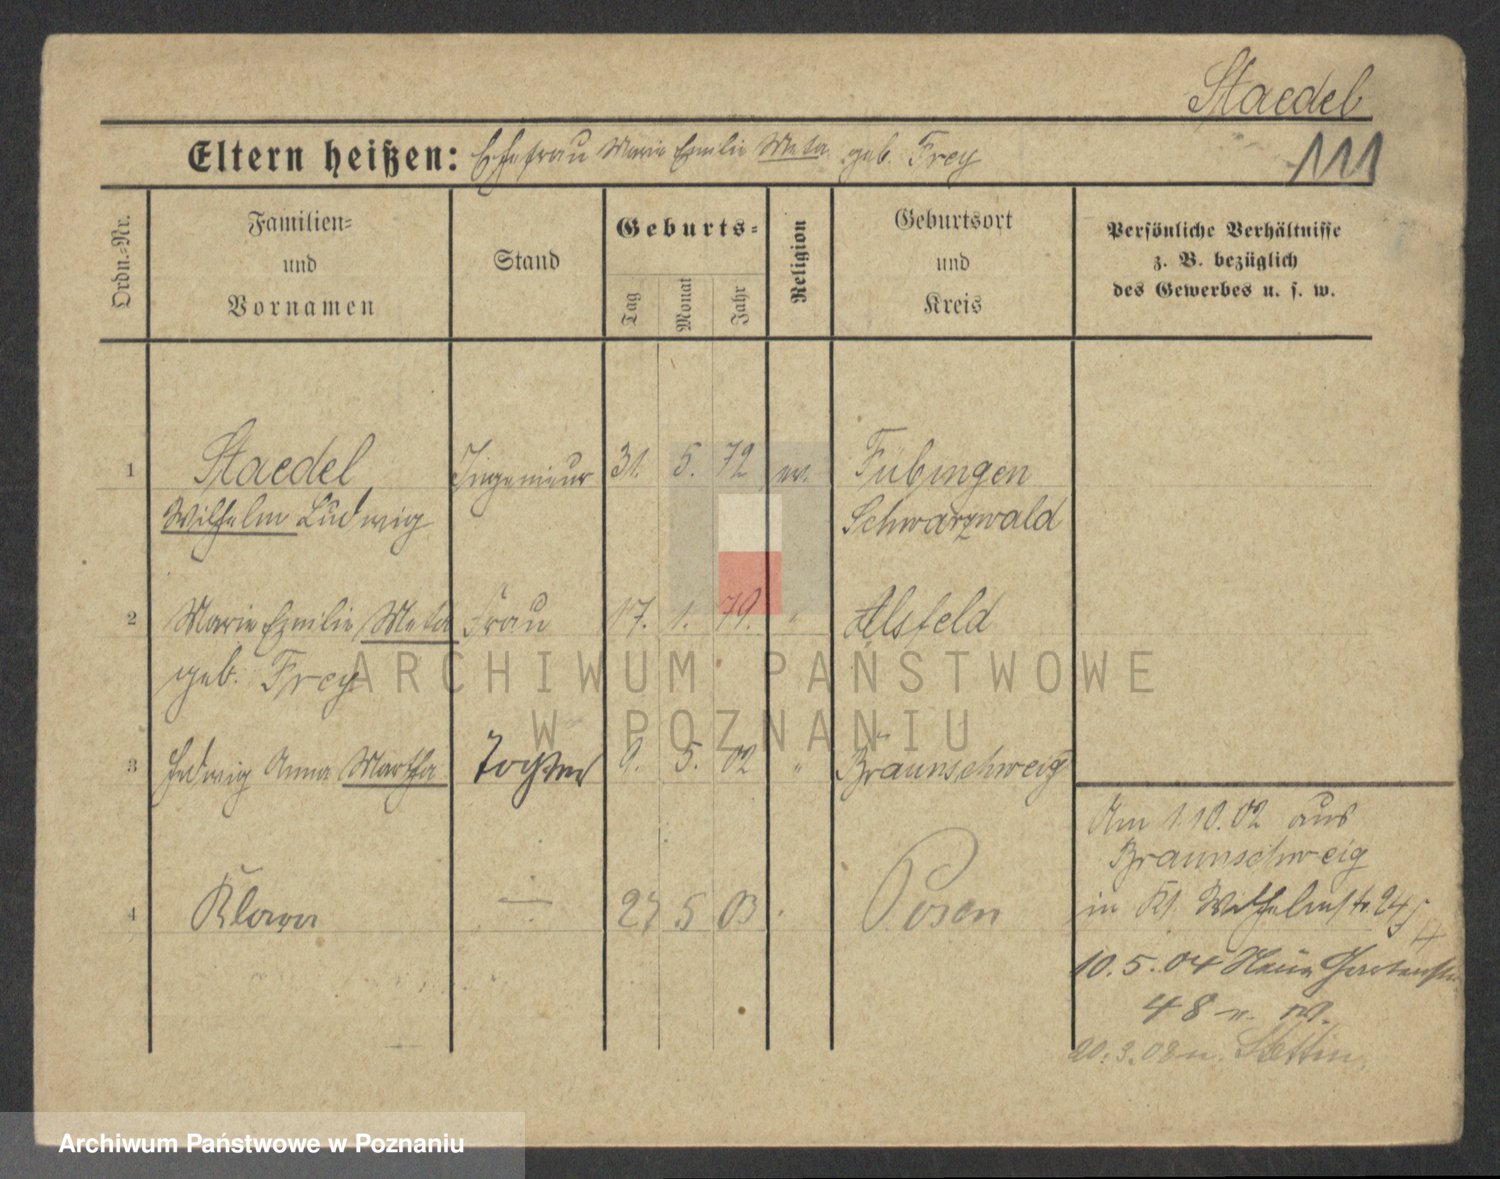 Staedel
111
Eltern heißen: Ehefrau Marie Emilie Meta geb. Frey
Ordn.-Nr.
Familien-
und
Vornamen
Stand
Geburts-
Tag
Monat
Jahr
Religion
Geburtsort
und
Kreis
Persönliche Verhältnisse
z. B. bezüglich
des Gewerbes u. s. w.
1 Staedel Ingenieur 31. 5. 72 ev. Tübingen
Wilhelm Ludwig Schwarzwald
2 Marie Emilie Meta Frau 17. 1. 79. " Alsfeld
geb. Frey
3 Hedwig Anna Martha Tochter 9. 5. 02 " Braunschweig
Am 1.10.02 aus
Braunschweig
4 Klara 27 5 03 Posen
in Wilhelmstr. 24
10.5.04 Neue Gartenstr.
48 n. W.
20.3.08 n. Stettin
ARCHIWUM PAŃSTWOWE
W POZNANIU
Archiwum Państwowe w Poznaniu